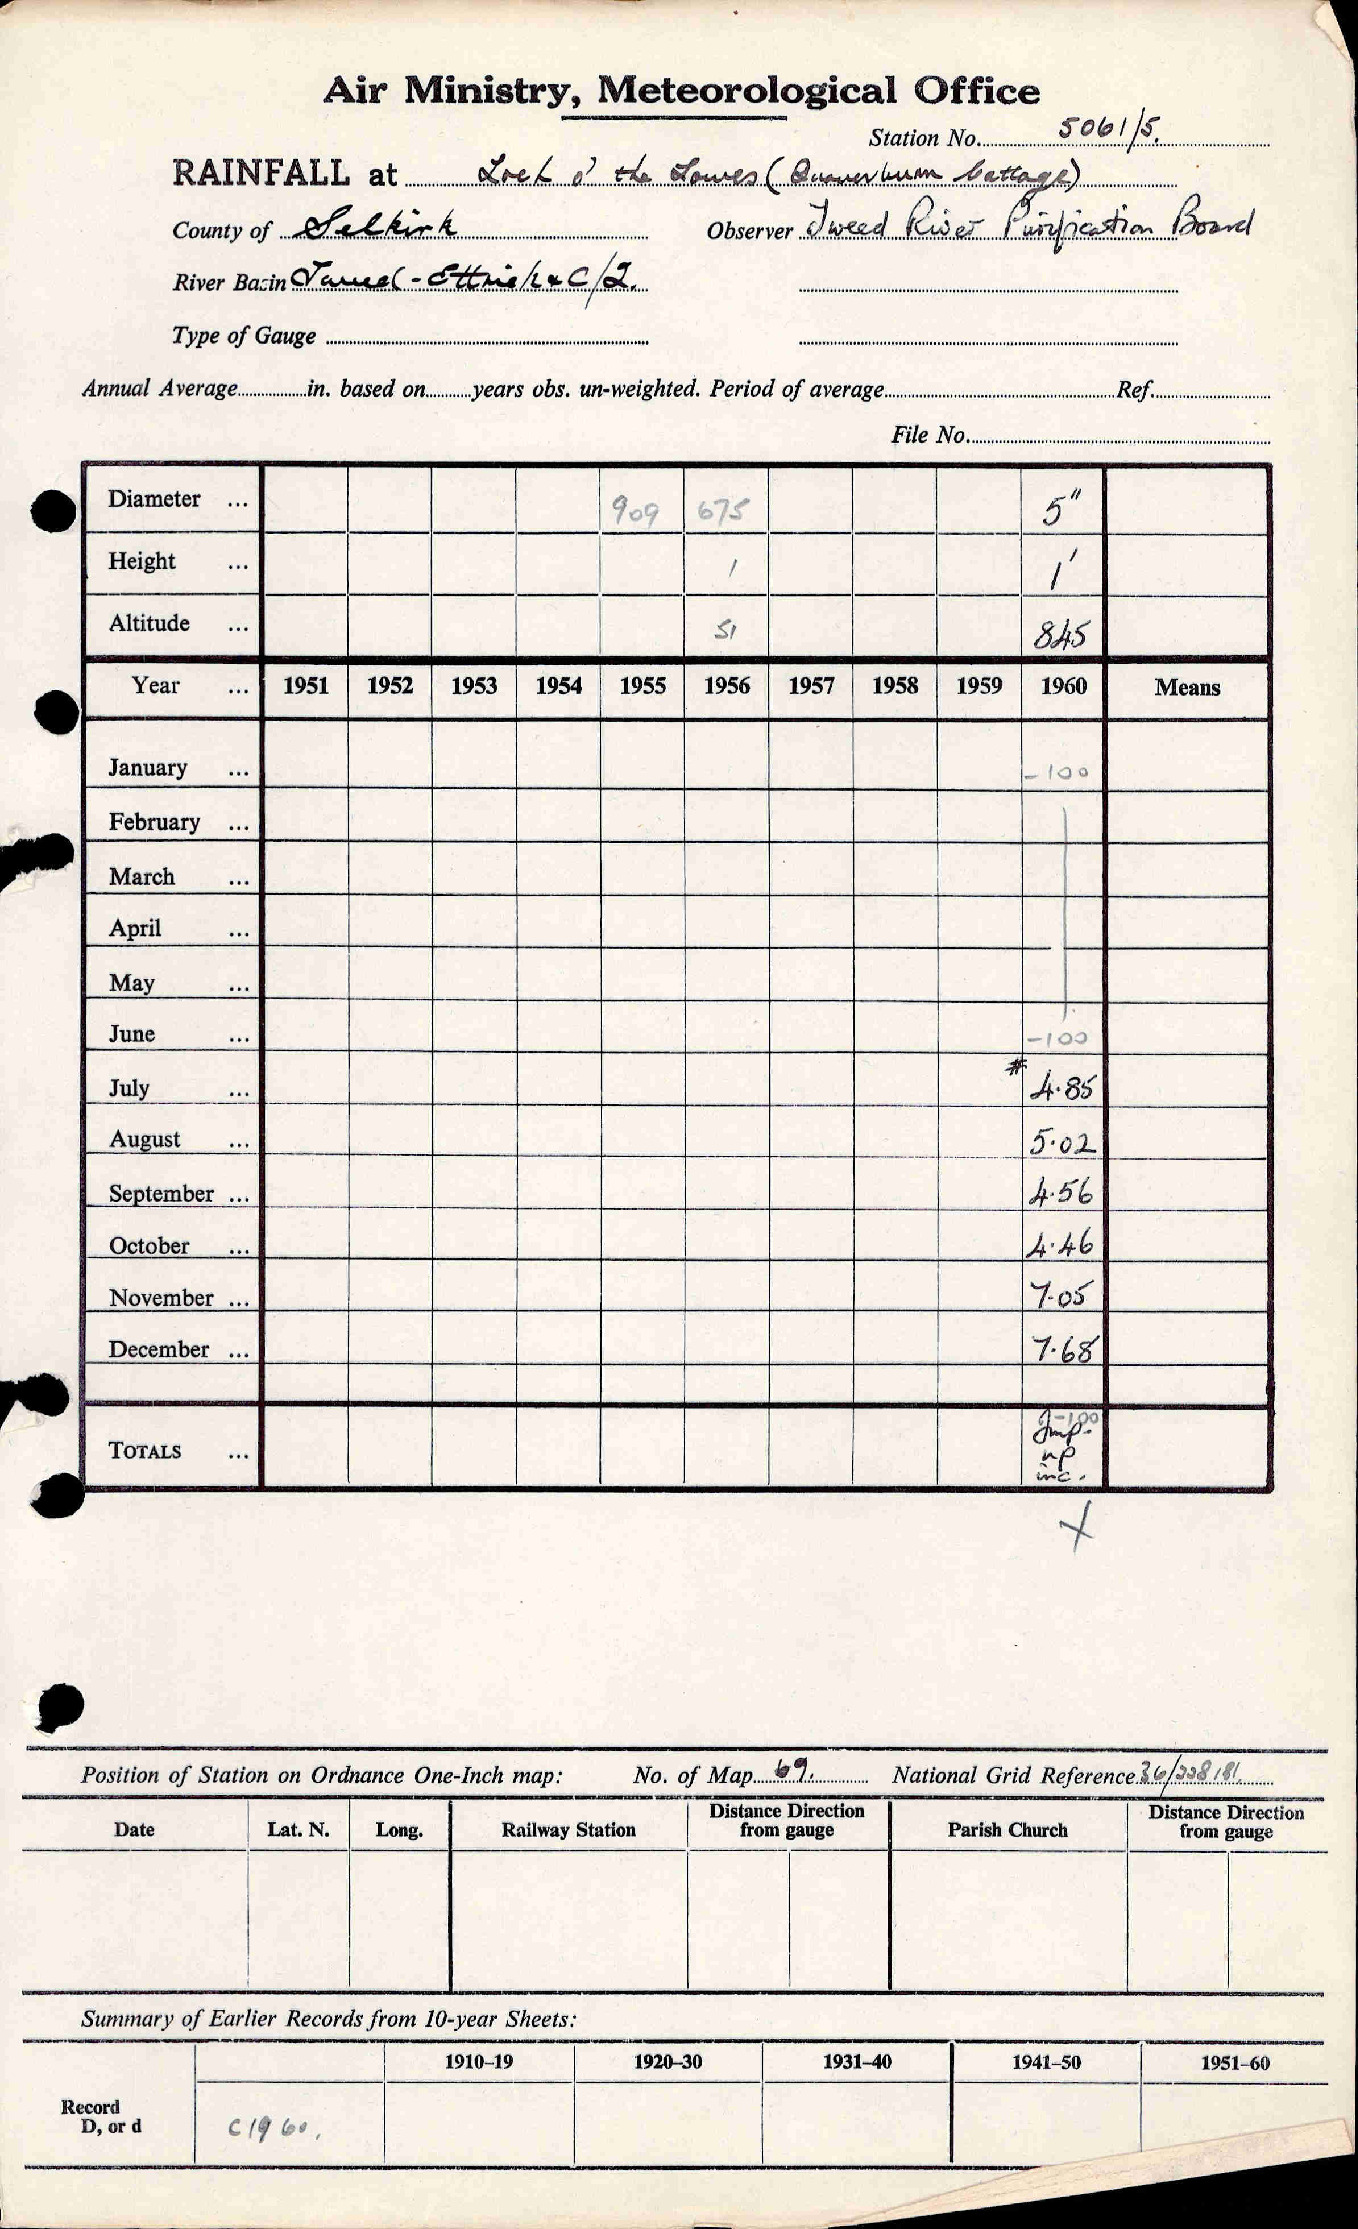 Air Ministry, Meteorological Office
Station No. 5061/5.
RAINFALL at Loch o' the Lowes ( Cottage)
County of Selkirk Observer Tweed River Purification Board
River Basin Tweed - Ettrick & C/2.
Type of Gauge
Annual Average in. based on years obs. un-weighted. Period of average Ref.
File No.
Diameter ... 909 675 5"
Height ... 1 1'
Altitude ... 51 845
Year ... 1951 1952 1953 1954 1955 1956 1957 1958 1959 1960 Means
January ... -100
February ...
March ...
April ...
May ...
June ... -100
July ... # 4.85
August ... 5.02
September ... 4.56
October ... 4.46
November ... 7.05
December ... 7.68
-100
TOTALS ... inc.
X
Position of Station on Ordnance One-Inch map: No. of Map 69. National Grid Reference 36/228181.
Date Lat. N. Long. Railway Station Distance Direction from gauge Parish Church Distance Direction from gauge
Summary of Earlier Records from 10-year Sheets:
1910–19 1920–30 1931–40 1941–50 1951–60
Record
D, or d C1960.